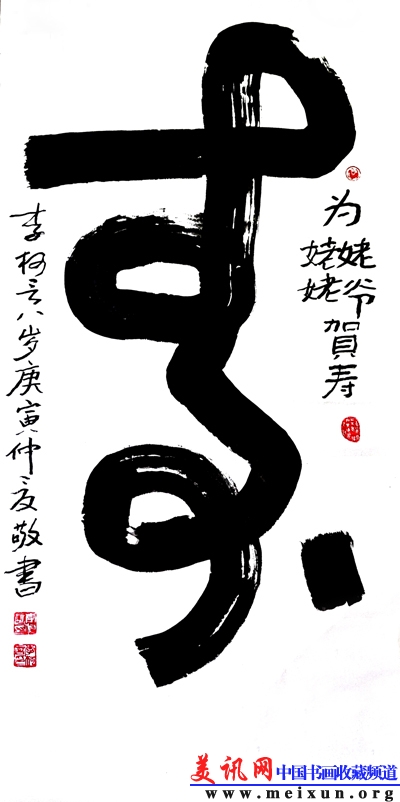 为姥爷姥姥賀寿
寿
李柯言八岁庚寅仲夏敬書
美讯网中国书画收藏频道
www.meixun.org